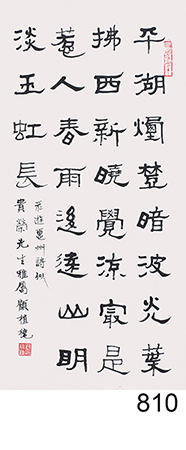 平湖煙楚暗波光葉
拂西新曉覺涼最是
惹人春雨後遠山明
淡玉虹長
遊惠州詩似
貴榮先生雅屬 顧植槐
810